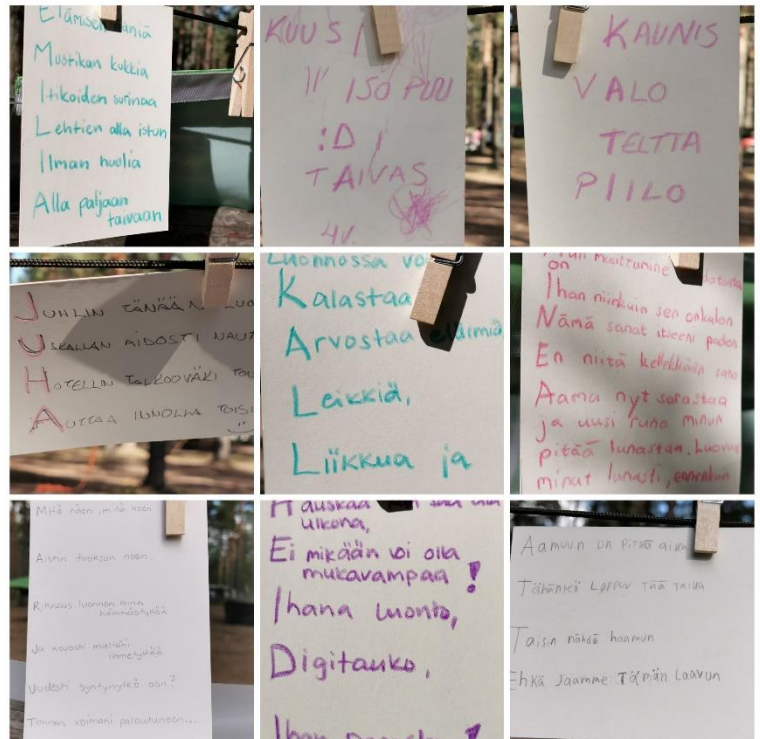 Elämisen
Mustikan kukkia
Itikoiden surinaa
Lehtien alla istun
Ilman huolia
Alla paljaan
taivaan
KUUSI
ISO PUU
:D
TAIVAS
4V.
KAUNIS
VALO
TELTTA
PIILO
JUHLIN TÄNÄÄN
USKALLAN AIDOSTI
HOTELLIN TALKOOVÄKI
AUTTAA INNOLLA
Luonnossa
Kalastaa
Arvostaa eläimiä
Leikkiä,
Liikkua ja
muuttumine
on
Ihan niinkuin sen onkalon
Nämä sanat itseeni padon
En niitä kellekkään sano
Aamu nyt sarastaa
ja uusi runo minun
pitää lunastaa. Luovuus
minut lunasti, ennenkun
Mitä näen, mitä koen
Aistin tuoksun noen.
Rikkaus luonnon minua
hämmästyttää
Ja kovasti mieltäni
ilmestyttää
Uudesti syntynytkö oon?
voimani palautuneen...
Hauskaa
ulkona,
Ei mikään voi olla
mukavampaa!
Ihana luonto,
Digitauko,
Ihan
Aamuun on pitkä aika
Tähänkö loppuu tää taika
Taisin nähdä haamun
Ehkä saamme Tämän Laavun